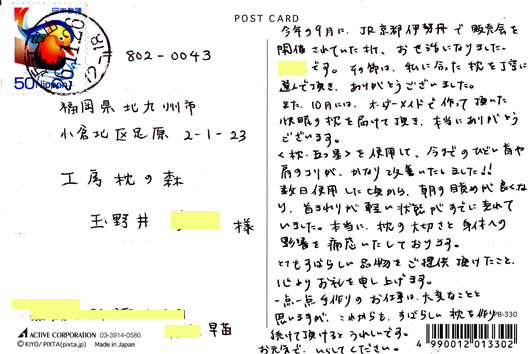 POST CARD
50 Nippon
802-0043
福岡県北九州市
小倉北区足原 2-1-23
工房枕の森
玉野井
様
早苗
ACTIVE CORPORATION 03-3914-0580
©KIYO/PIXTA(pixta.jp) Made in Japan
今年の9月に、JR京都伊勢丹で販売会を
開催されていた折、お世話になりました
です。その節は、私に合った枕を丁寧に
選んで頂き、ありがとうございました。
また、10月には、オーダーメイドで作って頂いた
快眠の枕を届けて頂き、本当にありがとう
ございます。
<枕・五つ星>を使用して、今までのひどい首や
肩のコリが、かなり改善いたしました!!
数日使用した頃から、朝の目覚めが良くな
り、首まわりが軽い状態がすでに表れて
いました。本当に、枕の大切さと身体への
影響を痛感いたしております。
とてもすばらしい品物をご提供頂けたこと、
心よりお礼を申し上げます。
一点一点手作りのお仕事は、大変なことと
思いますが、これからも、すばらしい枕を作り
続けて頂けると うれしいです。
お元気で、いらしてください。
PB-330
4 990012 013302